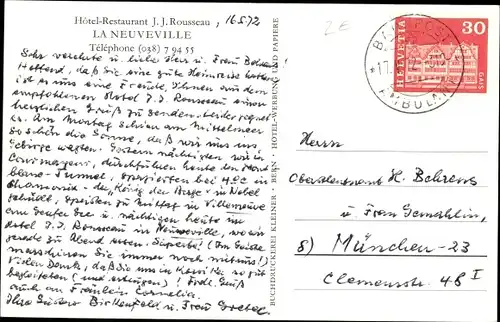 Hôtel-Restaurant J. J. Rousseau, 16.5.72
LA NEUVEVILLE
Téléphone (038) 7 94 55
Sehr verehrte u. liebe Herr u. Frau Behrens
Hoffend, daß Sie eine gute Heimreise hatten
ist es uns eine Freude, Ihnen aus dem
empfohlenen Hotel J. J. Rousseau einen
herzlichen Gruß zu senden. Leider regnet
es. Am Montag schien am Mittelmeer
so schön die Sonne, daß wir uns ins
Gebirge wagten. Gestern nächtigten wir in
Courmayeur, durchfuhren heute den Mont
blanc-Tunnel, spazierten bei 4°C in
Chamonix - der König der Berge in Nebel
gehüllt, speisten zu Mittag in Villeneuve
am Genfer See u. nächtigen heute im
Hotel J. J. Rousseau in Neuveville, wo wir
gerade zu Abend essen. Superbe! (Im Geiste
marschieren Sie immer noch mit uns!)
Vielen Dank, daß Sie uns in so gut
begleiteten (und ertrugen)! Frdl. Gruß
auch an Fräulein Cornelia.
Ihre Gustav Birkenfeld u. Frau Gretel
BUCHDRUCKEREI KLEINER - BERN - HOTEL-WERBUNG UND PAPIERE
HELVETIA
30
GAIS
AMBULANT
Herrn
Oberstleutnant H. Behrens
u. Frau Gemahlin,
8) München-23
Clemensstr. 48 I